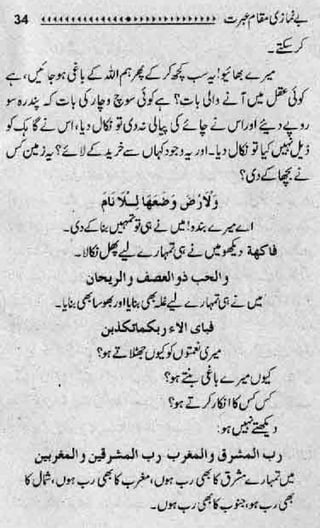 بے نمازی مقام عبرت 34
کر سکتے۔
میرے بھائیو! یہ سب کچھ کر کے پھر ہم اللہ کے باغی ہو جائیں، ہے
کوئی عقل میں آنے والی بات؟ ہے کوئی سوچ وچار کی بات کہ پندرہ سو
روپے دیئے اور اس نے چائے کی پیالی نہ دی تو نکال دیا، اس نے گاہک کو
ڈیل نہیں کیا تو نکال دیا۔ اور یہ وجود کہاں سے خرید کے لائے؟ یہ زمین کس
نے بچھا کے دی؟
وَلْاَرْضَ وَضَعَهَا لِلْاَنَامَ
اے میرے بندو! میں نے ہی تو تمہیں بنا کے دی۔
فاكهة دیکھو میں نے ہی تمہارے لیے پھل نکالا۔
والحب ذو العصف والريحان
میں نے ہی تمہارے لیے غلہ بھی بنایا اور بھوسا بھی بنایا۔
فباى الاء ربكماتكذبن
میری نعمتوں کو کیوں جھٹلاتے ہو؟
کیوں میرے باغی بنتے ہو؟
کس کس کا انکار کرتے ہو؟
دیکھتے نہیں ہو:
رب المشرق والمغرب رب المشرقين والمغربين
میں تمہارے مشرق کا بھی رب ہوں، مغرب کا بھی رب ہوں، شمال کا
بھی رب ہو، جنوب کا بھی رب ہوں۔